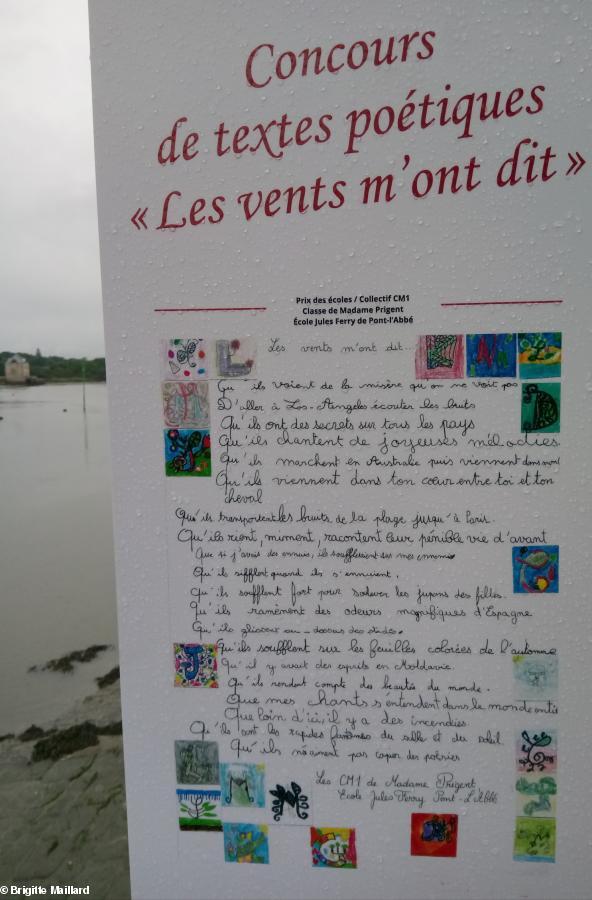 Concours
de textes poétiques
« Les vents m'ont dit »
Prix des écoles / Collectif CM1
Classe de Madame Prigent
École Jules Ferry de Pont-l'Abbé
Les vents m'ont dit...
Qu'ils voient de la misère qu'on ne voit pas
D'aller à Los-Angeles écouter les bruits
Qu'ils ont des secrets sur tous les pays
Qu'ils chantent de joyeuses mélodies
Qu'ils marchent en Australie puis viennent dans
Qu'ils viennent dans ton cœur entre toi et ton
cheval
Qu'ils transportent les bruits de la plage jusqu'à Paris.
Qu'ils rient, miment, racontent leur pénible vie d'avant
Que si j'avais des ennuis, ils souffleraient sur mes ennemis
Qu'ils sifflent quand ils s'ennuient.
Qu'ils soufflent fort pour soulever les jupons des filles.
Qu'ils ramènent des odeurs magnifiques d'Espagne
Qu'ils glissent au-dessous des
Qu'ils soufflent sur les feuilles colorées de l'automne
Qu'il y avait des esprits en Moldavie.
Qu'ils rendent compte des beautés du monde.
Que mes chants s'entendent dans le monde entier
Que loin d'ici, il y a des incendies.
Qu'ils sont les rapides fantômes du sable et du soleil.
Qu'ils n'aiment pas
Les CM1 de Madame Prigent
Ecole Jules Ferry Pont-L'Abbé
© Brigitte Maillard